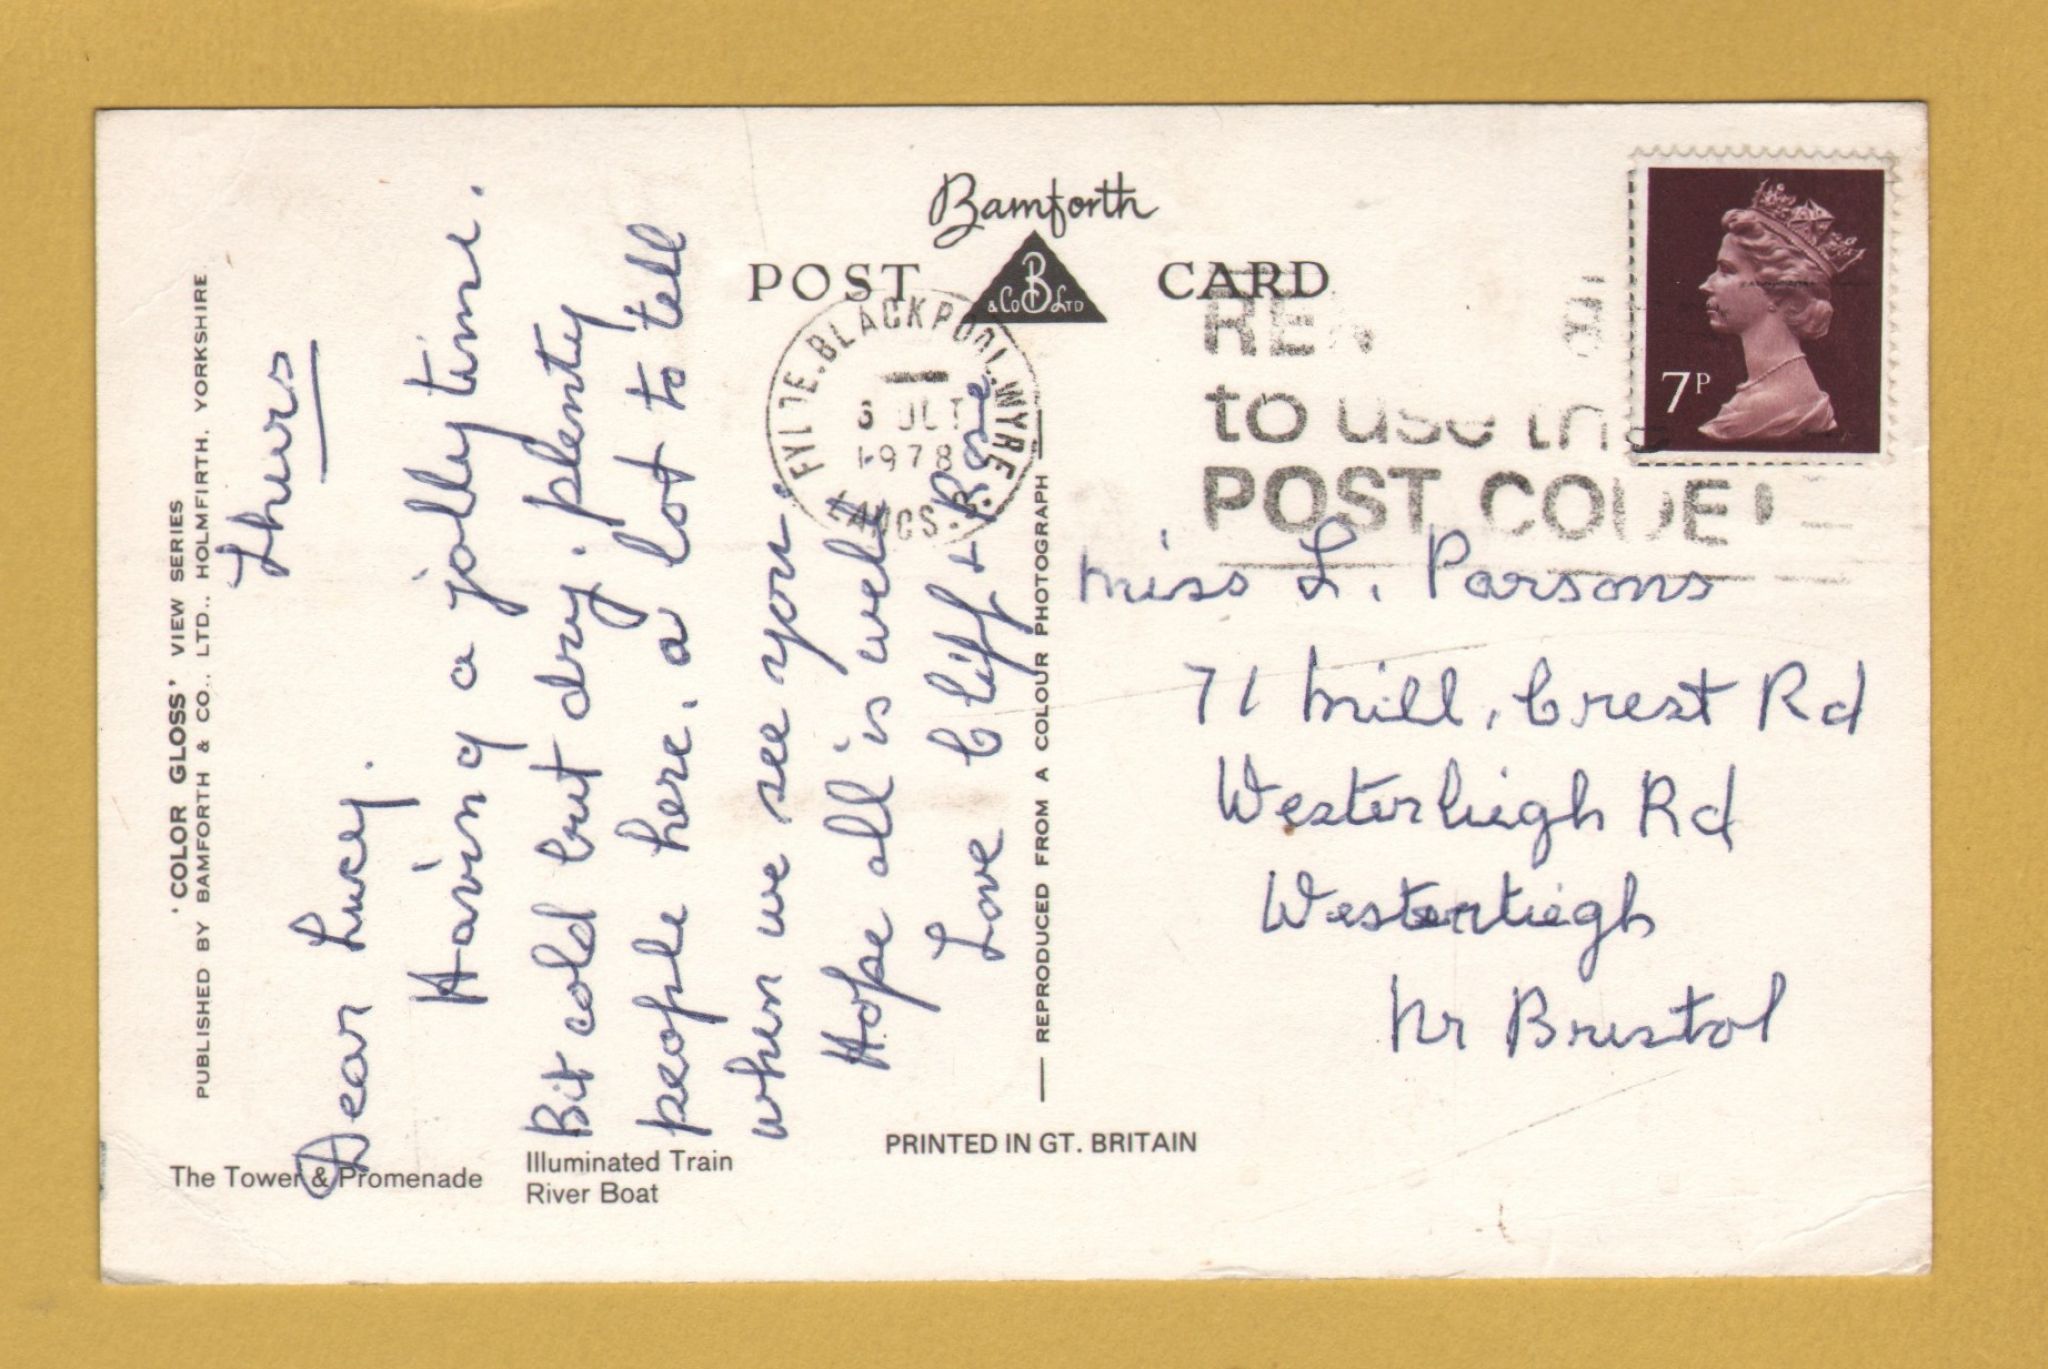 'COLOR GLOSS' VIEW SERIES
PUBLISHED BY BAMFORTH & CO., LTD., HOLMFIRTH, YORKSHIRE
Thurs
Dear Lucy.
Having a jolly time.
Bit cold but dry. plenty
people here. a lot to tell
when we see you.
Hope all is well
Love Cliff + Rose
The Tower & Promenade
Illuminated Train
River Boat
Bamforth
POST CARD
B
& Co LTD
FYLDE. BLACKPOOL. WYRE
OCT
1978
LANCS.
to use the
POST CODE
7P
REPRODUCED FROM A COLOUR PHOTOGRAPH
PRINTED IN GT. BRITAIN
Miss L. Parsons
71 Mill, Crest Rd
Westerleigh Rd
Westerleigh
Nr Bristol